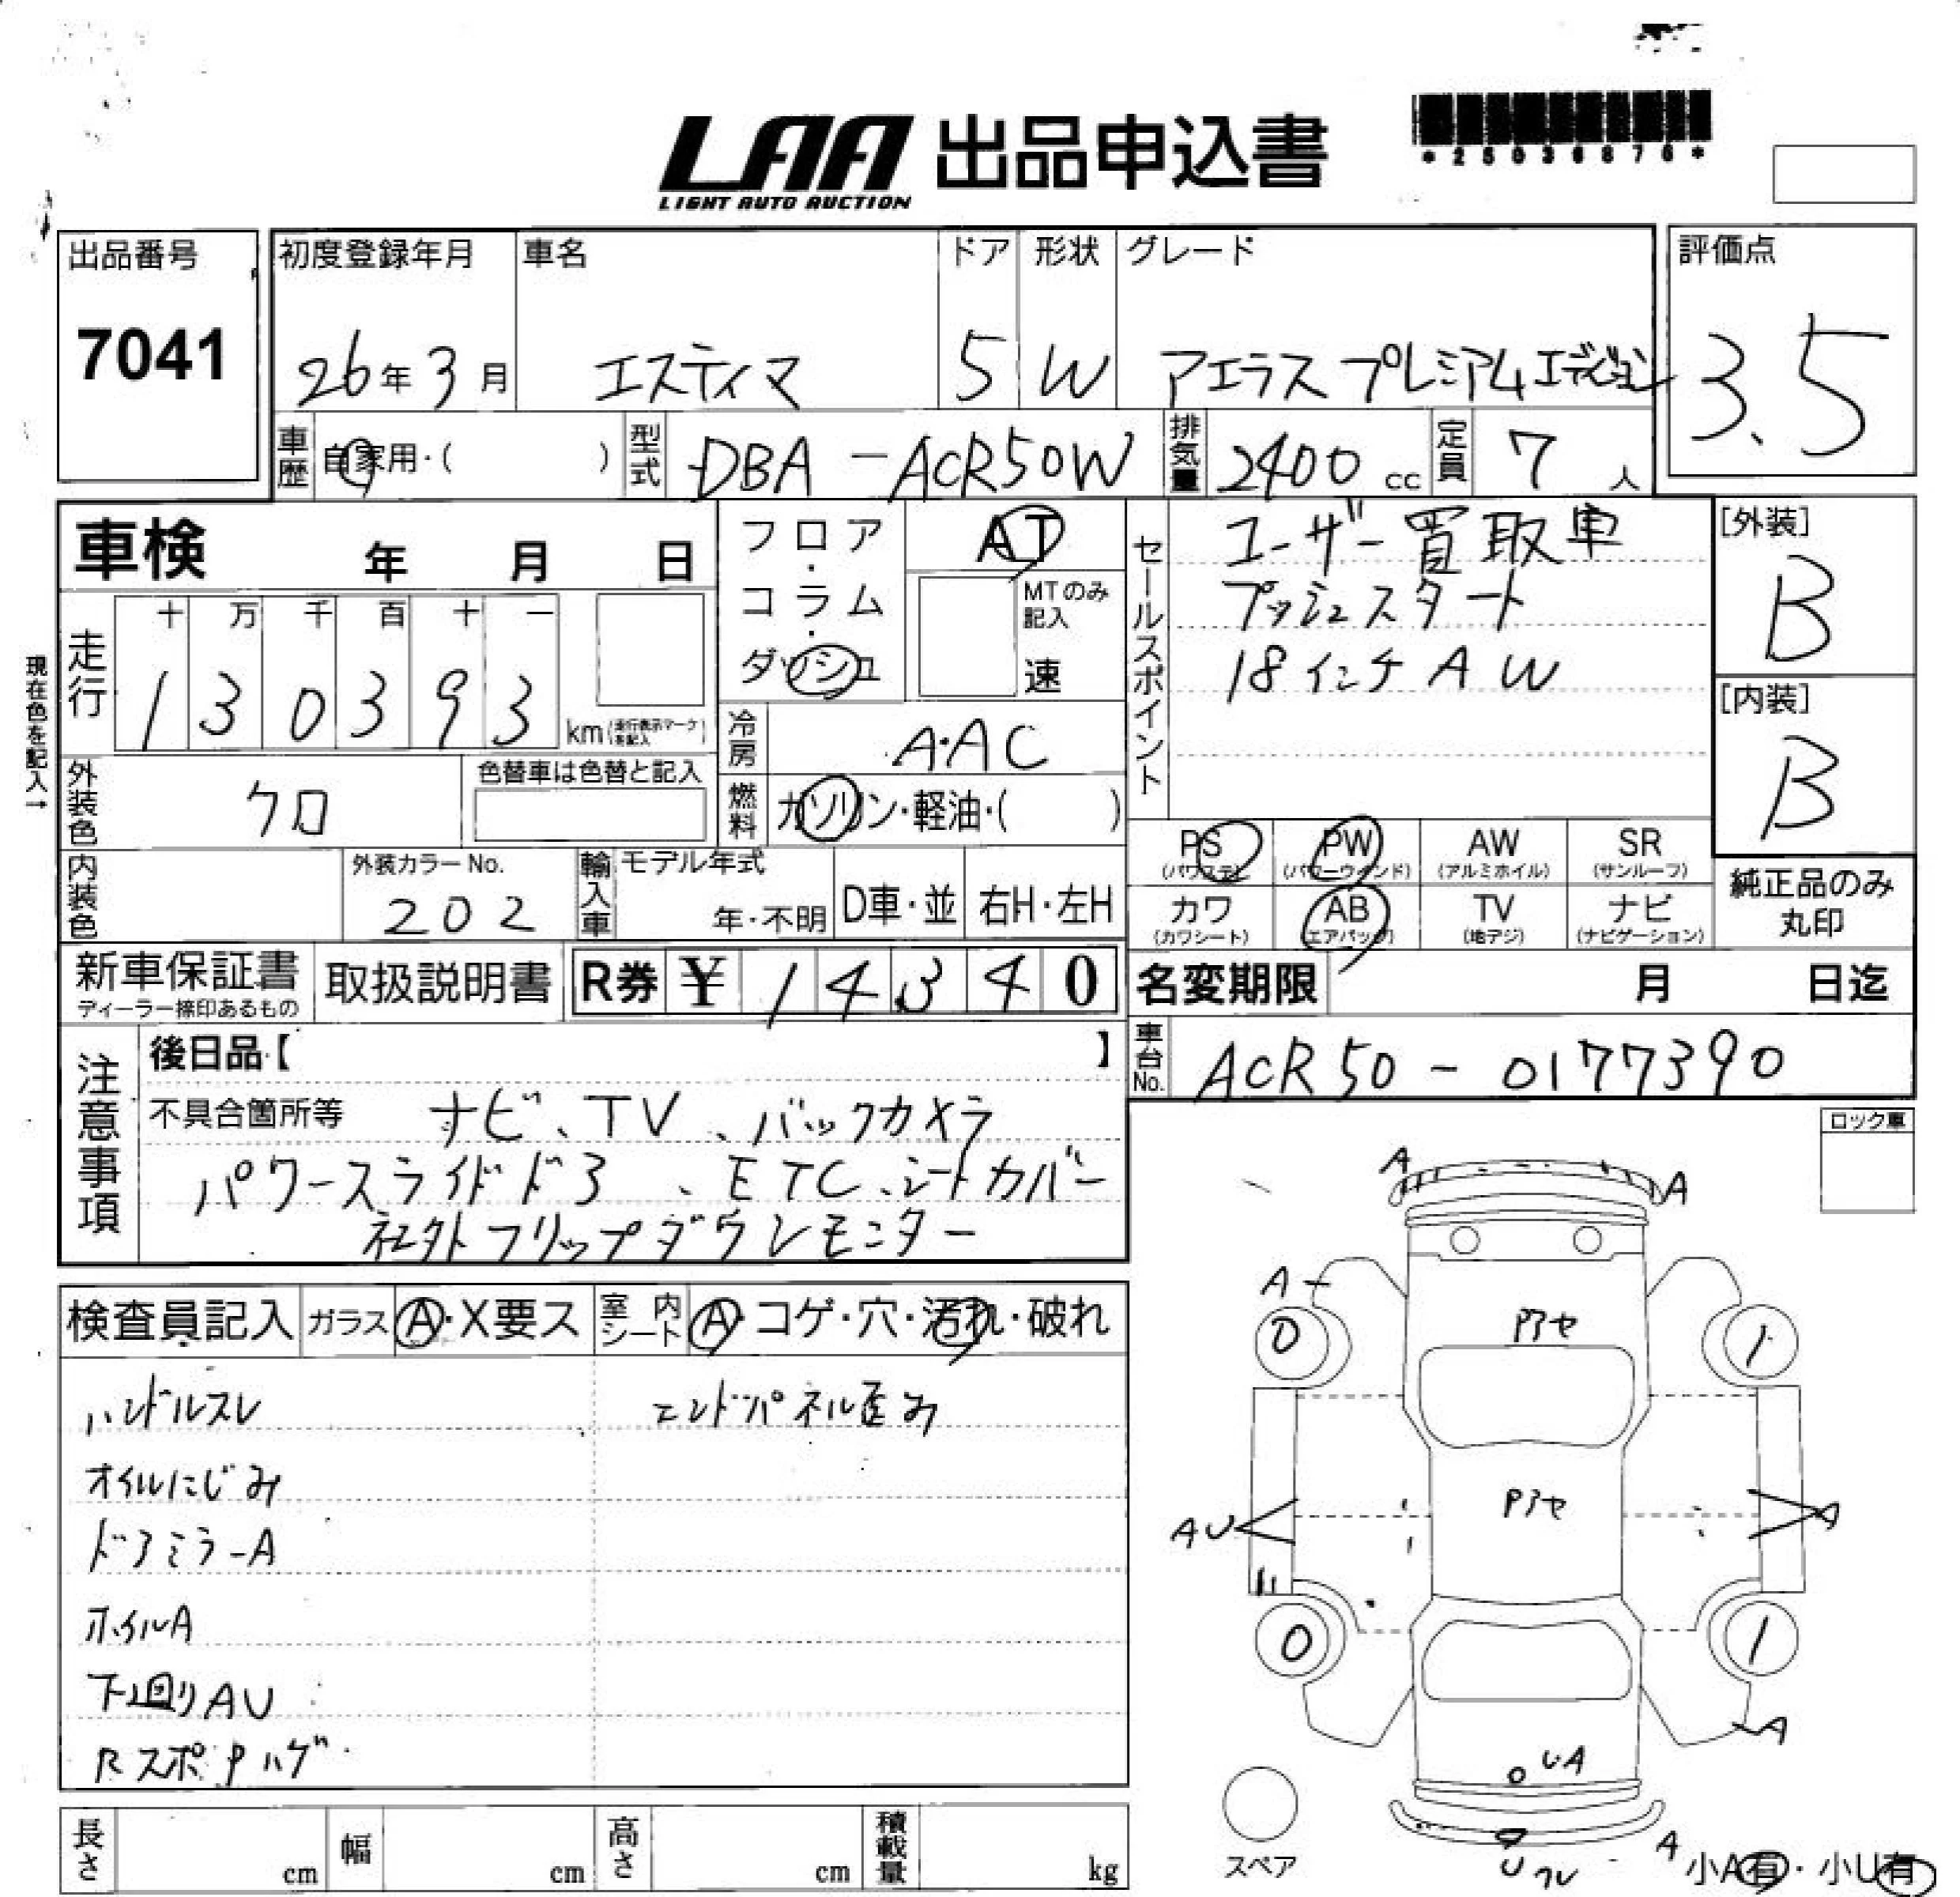 LAA 出品申込書
LIGHT AUTO AUCTION
*25036876*
出品番号
7041
初度登録年月 車名 ドア 形状 グレード
26年3月 エスティマ 5 W アエラス プレミアムエディション
評価点
3.5
車歴 自家用・( ) 型式 DBA-ACR50W 排気量 2400cc 定員 7人
車検 年 月 日
フロア・コラム・ダッシュ
AT
MTのみ記入
速
走行 十万千百十一
130393
km(走行表示マークを記入)
現在色を記入→
冷房 A・AC
外装色 クロ
色替車は色替と記入
燃料 ガソリン・軽油・( )
内装色
外装カラーNo.
202
輸入車 モデル年式
年・不明 D車・並 右H・左H
セールスポイント
ユーザー買取車
プッシュスタート
18インチAW
[外装]
B
[内装]
B
PS (パワステ) PW (パワーウィンド) AW (アルミホイル) SR (サンルーフ)
カワ (カワシート) AB (エアバッグ) TV (地デジ) ナビ (ナビゲーション)
純正品のみ
丸印
新車保証書
ディーラー捺印あるもの
取扱説明書
R券 ¥14340
名変期限 月 日迄
車台No. ACR50-0177390
注意事項
後日品【 】
不具合箇所等 ナビ、TV、バックカメラ
パワースライドドア、ETC、シートカバー
社外フリップダウンモニター
ロック車
検査員記入 ガラス A・X要ス 室内シート A・コゲ・穴・汚れ・破れ
ハンドルスレ エンドパネル歪み
オイルにじみ
ドアミラーA
ホイルA
下廻りAU
RスポPハゲ
A A
A
0 1
Pアセ
Pアセ
AU A
0 1
A
UA
A
スペア
小A有・小U有
長さ cm 幅 cm 高さ cm 積載量 kg